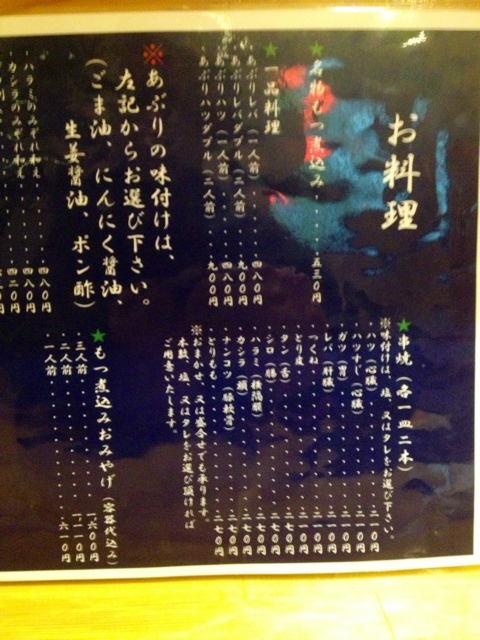 お料理
★名物もつ煮込み・・・・・五三〇円
★一品料理
あぶりレバ(一人前)・・・四八〇円
あぶりレバダブル(二人前)・・・九〇〇円
あぶりハツ(一人前)・・・四八〇円
あぶりハツダブル(二人前)・・・九〇〇円
※あぶりの味付けは、
左記からお選び下さい。
(ごま油、にんにく醤油、
生姜醤油、ポン酢)
ハラミのみぞれ和え・・・四八〇円
★串焼(各一皿二本)
※味付けは、塩、又はタレをお選び下さい。
ハツ(心臓)・・・二一〇円
ハツすじ(心臓)・・・二一〇円
ガツ(胃)・・・二一〇円
レバ(肝臓)・・・二一〇円
つくね・・・二一〇円
とり皮・・・二一〇円
タン(舌)・・・二七〇円
シロ(腸)・・・二一〇円
ハラミ(横隔膜)・・・二七〇円
カシラ(頬)・・・二七〇円
ナンコツ(豚軟骨)・・・二七〇円
とりもも・・・二七〇円
※おまかせ、又は盛合せでも承ります。
本数、塩、又はタレをお選び頂ければ
ご用意いたします。
★もつ煮込みおみやげ(容器代込み)
三人前・・・一、六〇〇円
二人前・・・一、一一〇円
一人前・・・六一〇円